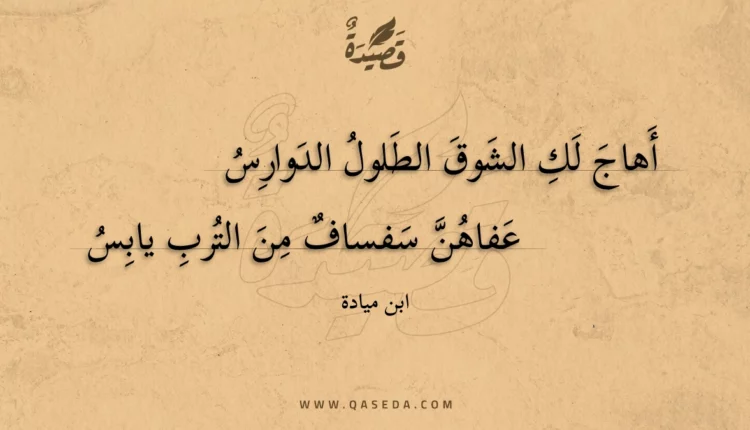 قَصِيْدَةٌ
أَهاجَ لَكِ الشَوقَ الطَلولُ الدَوارِسُ
عَفاهُنَّ سَفسافٌ مِنَ التُربِ يابِسُ
ابن ميادة
WWW.QASEDA.COM